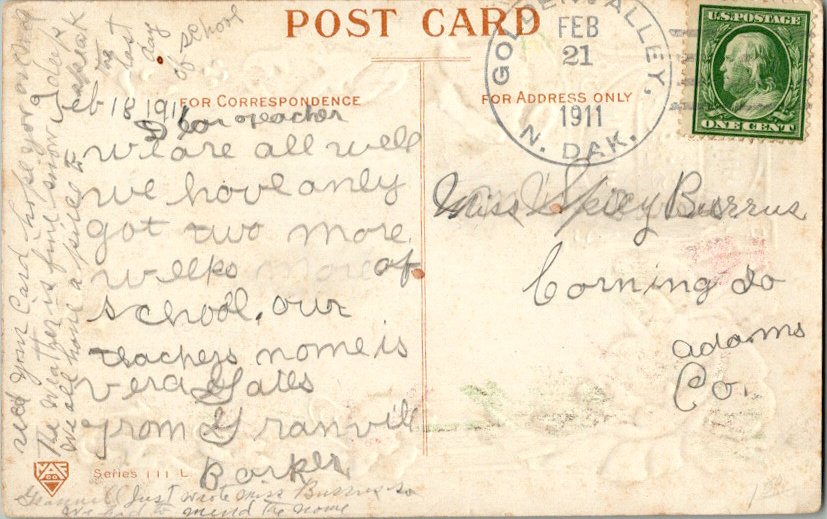 POST CARD
FOR CORRESPONDENCE
FOR ADDRESS ONLY
GOLDEN VALLEY,
FEB
21
1911
N. DAK.
U.S. POSTAGE
ONE CENT
Feb 18 1911
Dear teacher
we are all well
we have only
got two more
weeks more of
school. our
teachers name is
vera Gates
from Granvill
Barker
Miss Spicy Burrus
Corning Io
adams
Co.
recd your Card hope you
the weather is fine snow is deep
we all have a
to
last
day
of school
Series 111 L
Granvill Just wrote Miss Burrus so
we had to mend the name